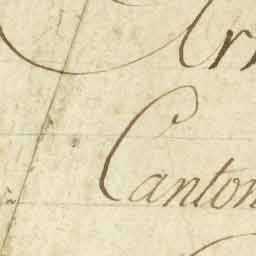 Arr
Canton